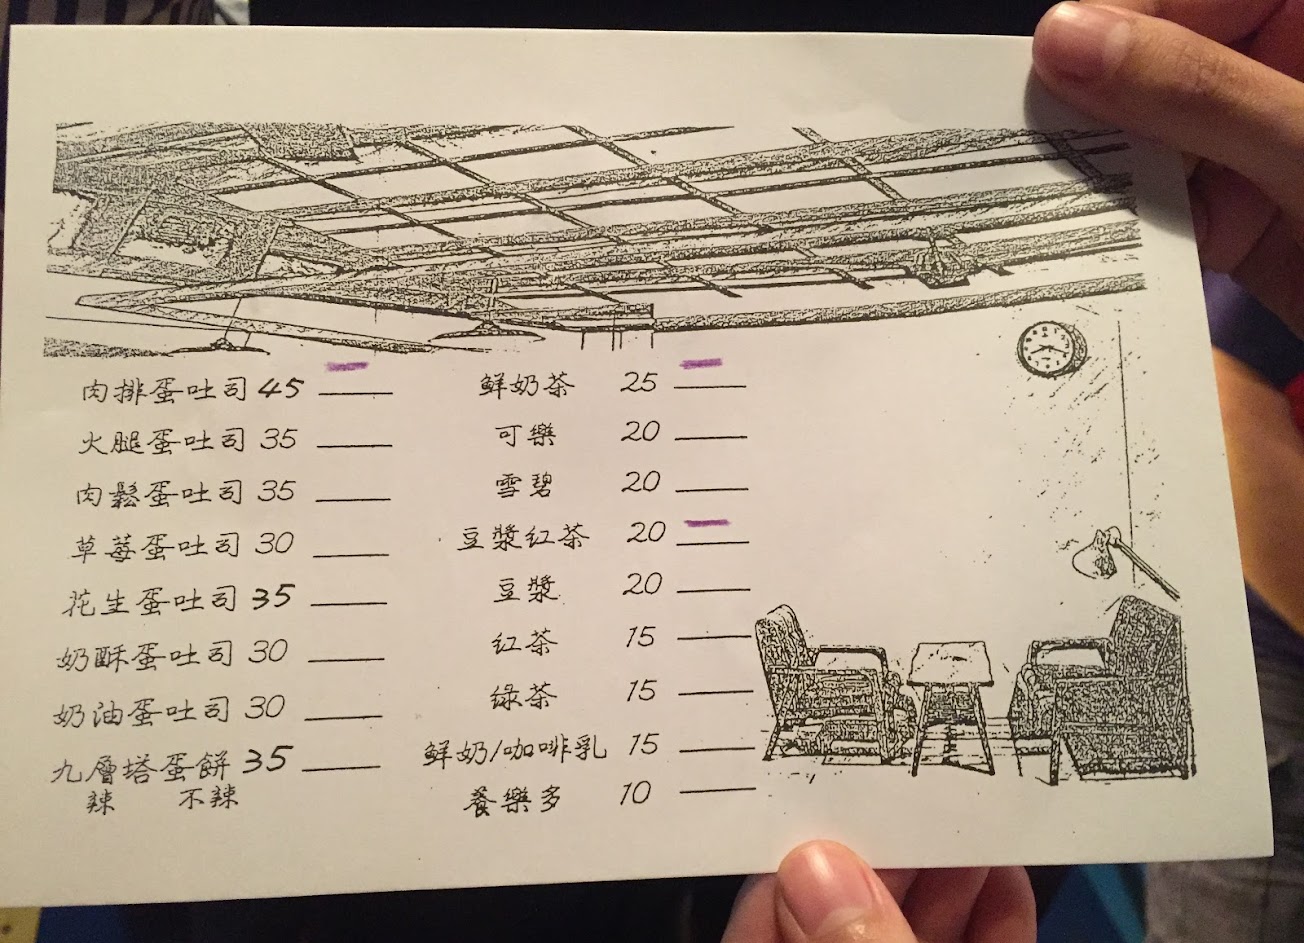 肉排蛋吐司 45
火腿蛋吐司 35
肉鬆蛋吐司 35
草莓蛋吐司 30
花生蛋吐司 35
奶酥蛋吐司 30
奶油蛋吐司 30
九層塔蛋餅 35
辣 不辣
鮮奶茶 25
可樂 20
雪碧 20
豆漿紅茶 20
豆漿 20
紅茶 15
綠茶 15
鮮奶/咖啡乳 15
養樂多 10